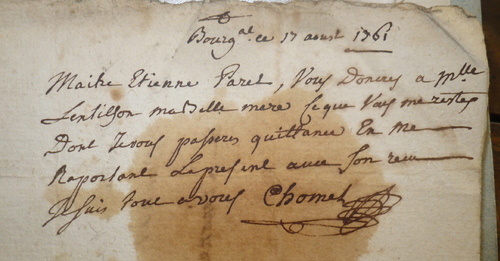 Bourg al ce 17 aoust 1761
Maitre Etienne Paret, Vous Donneres a Mlle
Lentillon ma belle mere ce que Vous me restes
Dont Je vous passeres quittance En me
Raportant Le present avec son recu
Je suis tout a vous Chomel